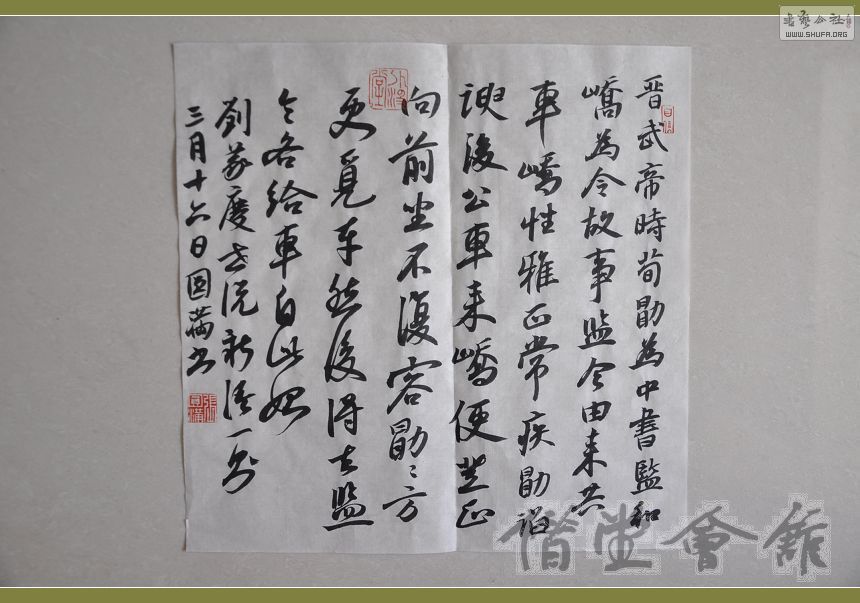 晋武帝時荀勖為中書監和
嶠為令故事監令由来共
車嶠性雅正常疾勖諂
諛後公車来嶠便登正
向前坐不復容勖勖方
更覓車然後得去監
令各给車自此始
劉義慶世说新語一則
三月十六日圆满书
書藝公社
WWW.SHUFA.ORG